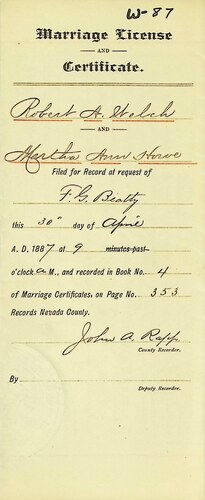 W-87
Marriage License
AND
Certificate.
Robert A. Welch
AND
Martha Ann Howe
Filed for Record at request of
F. G. Beatty
this 30" day of April
A. D. 1887 at 9 minutes past
o'clock a M., and recorded in Book No. 4
of Marriage Certificates, on Page No. 353
Records Nevada County.
John A. Rapp
County Recorder.
By
Deputy Recorder.